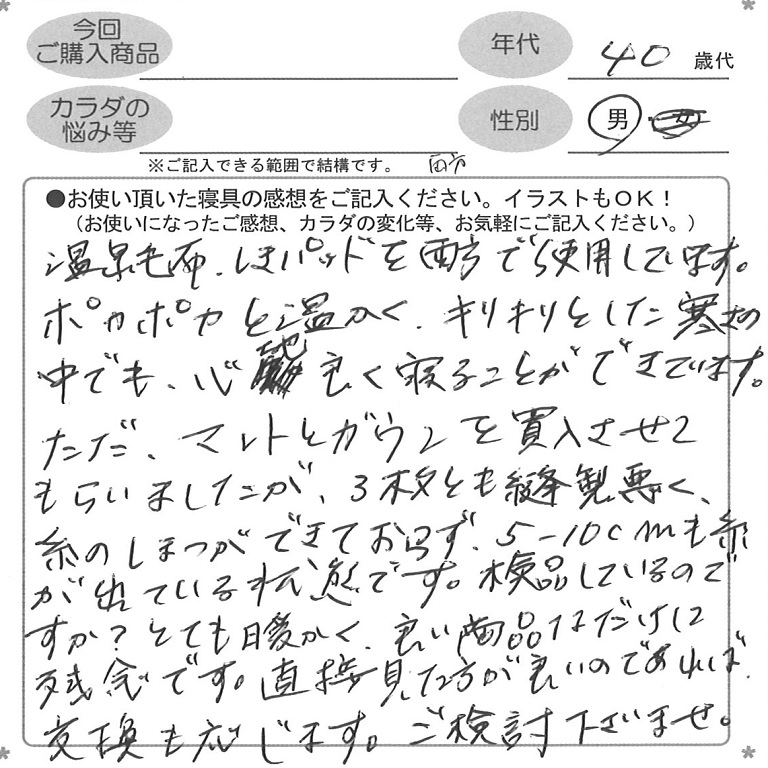 今回
ご購入商品
年代
40 歳代
カラダの
悩み等
性別
男・女
※ご記入できる範囲で結構です。
両方
●お使い頂いた寝具の感想をご記入ください。イラストもOK！
（お使いになったご感想、カラダの変化等、お気軽にご記入ください。）
温泉毛布、しきパッドを両方で使用しています。
ポカポカと温かく、キリキリとした寒さの
中でも、心地良く寝ることができています。
ただ、マットとガウンを買入させて
もらいましたが、3枚とも縫製悪く、
糸のしまつができておらず、5-10cmも糸
が出ている状態です。検品しているので
すか？とても暖かく、良い商品なだけに
残念です。直接見た方が良いのであれば、
交換も応じます。ご検討下さいませ。